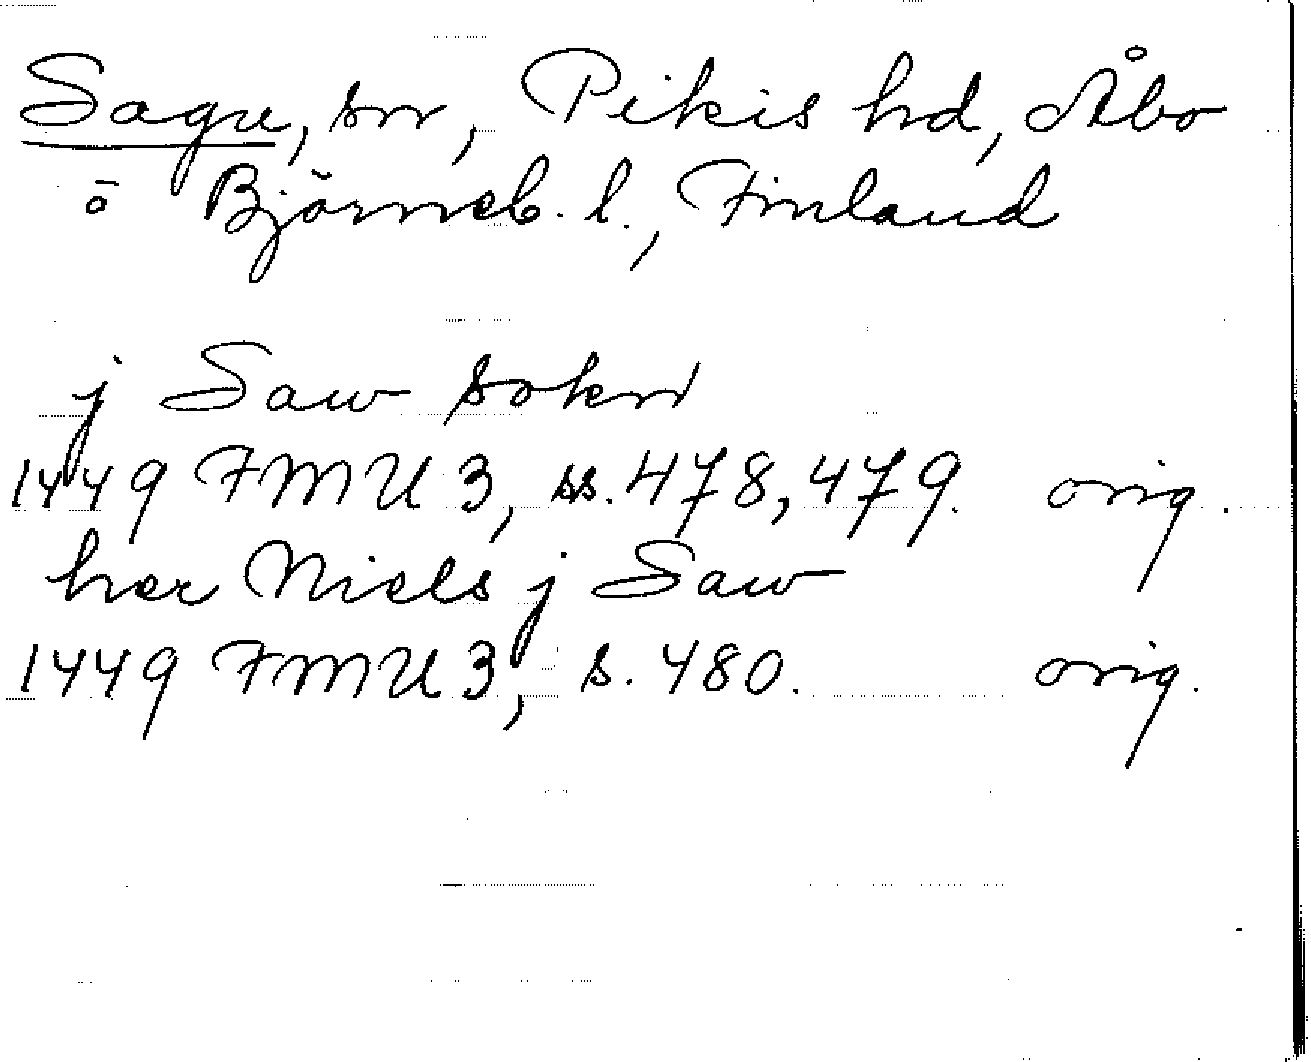 Sagu, sn, Pikis hd, Åbo
o Björneb. l., Finland
j Saw sokn
1449 FMU 3, ss. 478, 479. orig.
her Niels j Saw
1449 FMU 3, s. 480. orig.